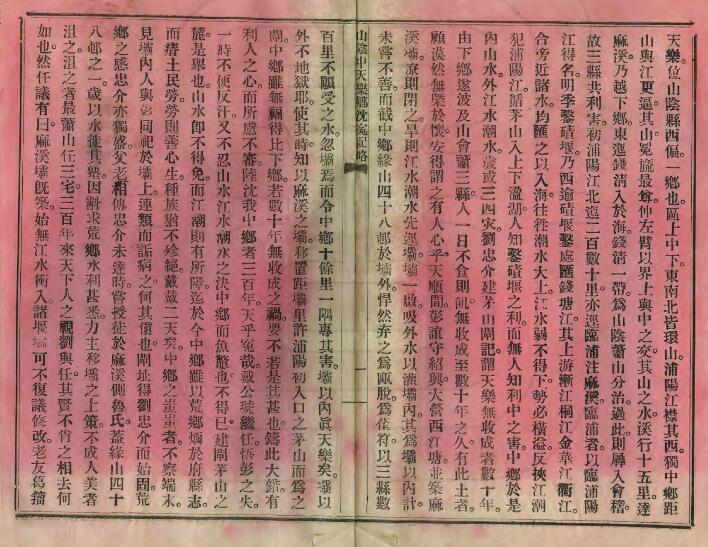 天樂位山陰縣西偏一鄉也區上中下東南北皆環山浦陽江襟其西獨中鄉距
山與江更逼其山冕旒最尊仲左臂以界上與中之交其山之水溪行十五里達
麻溪乃越下鄉東迤錢淸入於海錢淸一帶爲山陰蕭山分治過此則屬入會稽
故三縣共利害初浦陽江北迤二百數十里亦逕臨浦注麻溪臨浦者以臨浦陽
江得名明季鑿磧堰乃西逾磧堰鑿處匯錢塘江其上游漸江桐江金華江衢江
合旁近諸水均匯之以入海往往潮水大上江水弱不得下勢必橫溢反挾江潮
犯浦陽江循茅山入上下㵝湖人知鑿磧堰之利而無人知利中之害中鄉於是
內山水外江水潮水歲或三四灾劉忠介建茅山閘記謂天樂無收成者數十年
由下鄉遂波及山會蕭三縣人一日不食則飢無收成至數十年之久有此土者
顧漠然無槩於懷安得謂之有人心乎天順間彭誼守紹興大營西江塘並築麻
溪壩潦則閉之旱則江水潮水先逕壩壩一啟吸外水以灌壩內其爲壩以內計
未嘗不善而截中鄉緣山四十八邨於壩外悍然弃之爲甌脫爲萑苻以三縣數
山陰中天樂鄉沈寃記略
一
百里不願受之水忽壩焉而令中鄉十餘里一隅專其害壩以內眞天樂矣壩以
外不地獄耶使其時知以麻溪之壩移置距壩里許浦陽初入口之茅山而爲之
閘中鄉雖無福得比下鄉若數十年無收成之禍要不若是其甚也鑄此大錯有
利人之心而所處不審陸沈我中鄉者三百年天乎寃哉戴公琥繼任悟彭之失
一時不便反汗又不忍山水江水潮水之決中鄉而魚鼈也不得已建閘茅山之
麓是舉也山水卽不得免而江潮則有所障迄於今中鄉雖以荒鄉燗於府縣志
而瘠土民勞勞則善心生種族猶不殄絕戴戴二天矣中鄉之蚩蚩者不察端末
見壩內人與彭同祀於壩上連類而詬病之何其傎也閘址得劉忠介而始固荒
鄉之感忠介亦獨盛父老相傳忠介未達時嘗授徒於麻溪側魯氏葢緣山四十
八邨之一歲以水徙其塾因斠求荒鄉水利甚悉力主移壩之上策不成人美者
沮之沮之者最蕭山任三宅三百年來天下人之視劉與任其賢不肖之相去何
如也然任議有曰麻溪壩旣築始無江水衝入諸堰壩可不復議修改老友葛籀